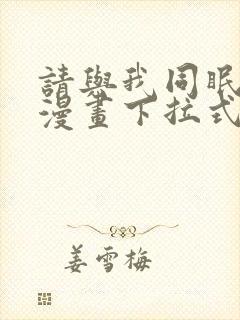 請與我同眠
漫畫下拉式
姜雪梅